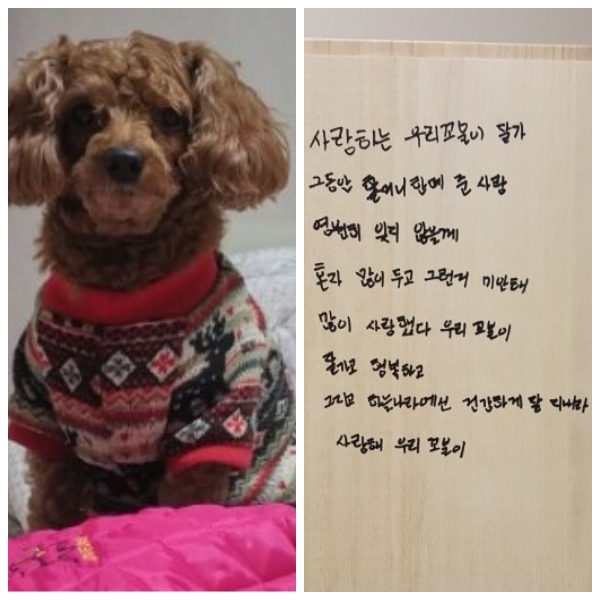 사랑하는 우리꼬물이 잘가
그동안 할머니한테 준 사랑
영원히 잊지 않을게
혼자 많이 두고 그런거 미안해
많이 사랑했다 우리 꼬물이
잘가고 행복하고
그리고 하늘나라에선 건강하게 잘 지내라
사랑해 우리 꼬물이